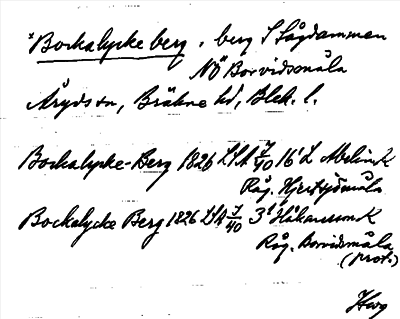 *Bockalycke berg, berg S Sågdammen
NÖ Borvidsmåla
Åryds sn, Bräkne hd, Blek. l.
Bockalycke-Berg 1826 LSA 7/40 16' L Melin K
Råg. Hjertsjömåla
Bockalycke Berg 1826 LSA 7/40 3' Håkansson K
Råg. Borvidsmåla
(prot.)